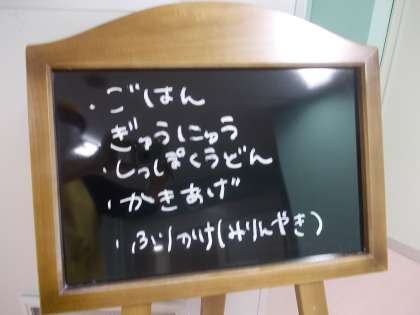 ・ごはん
ぎゅうにゅう
・しっぽくうどん
・かきあげ
・ふりかけ(みりんやき)